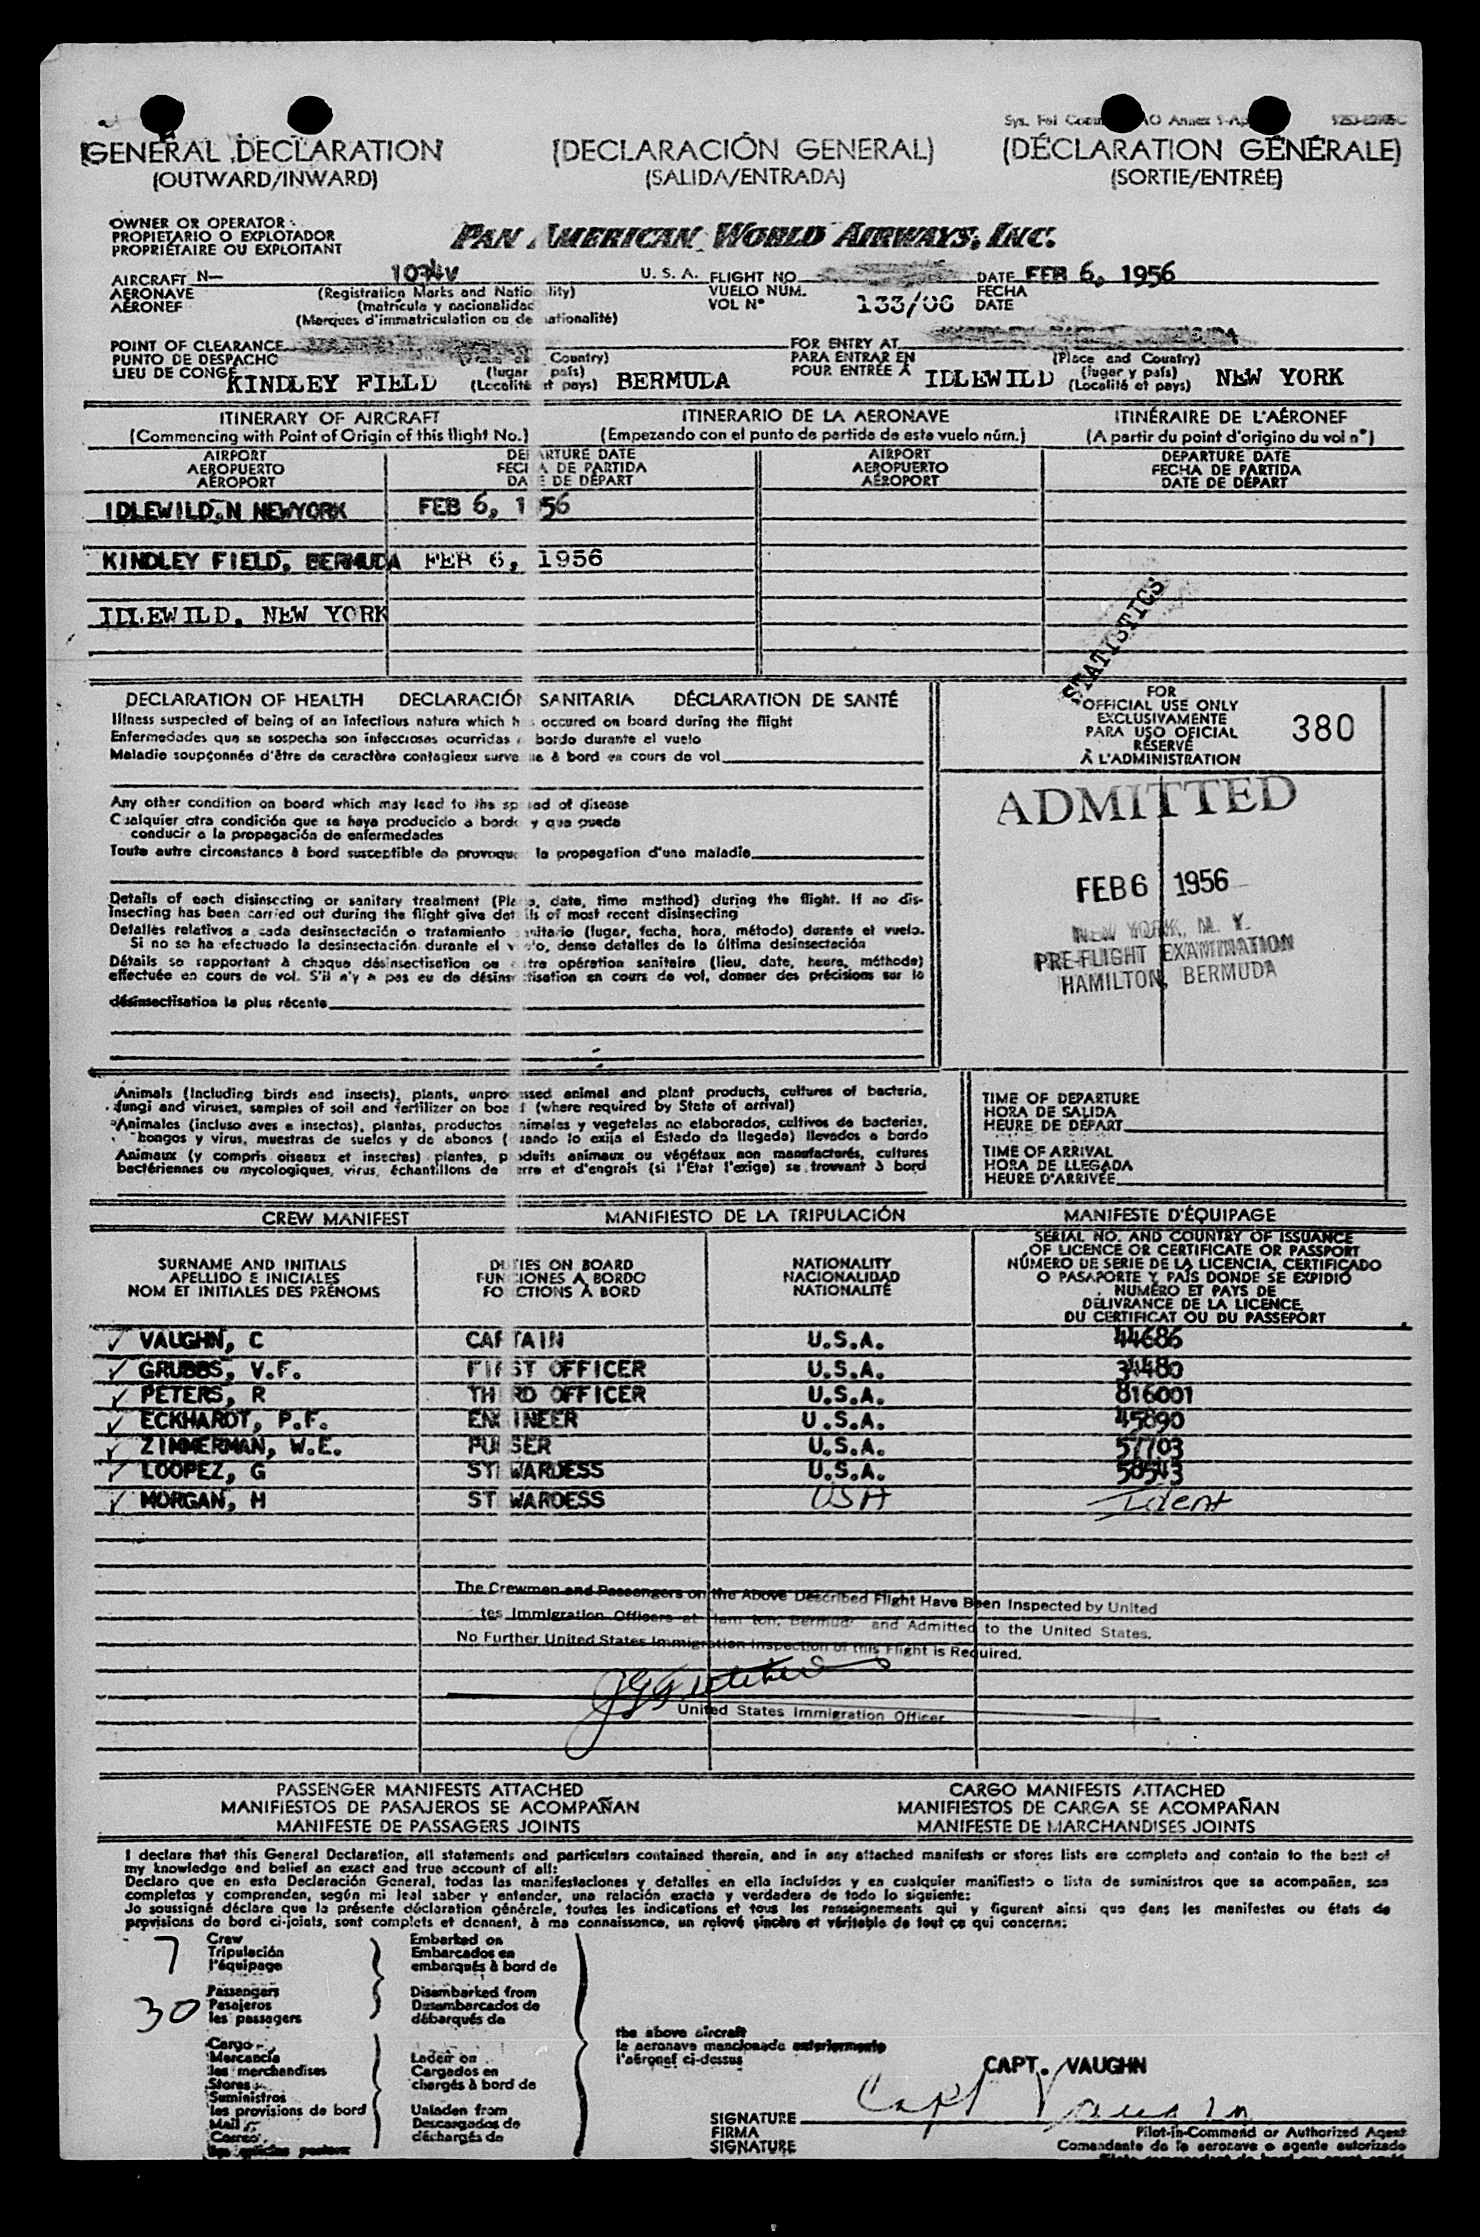 GENERAL DECLARATION
(OUTWARD/INWARD)
(DECLARACIÓN GENERAL)
(SALIDA/ENTRADA)
(DÉCLARATION GÉNÉRALE)
(SORTIE/ENTRÉE)
OWNER OR OPERATOR
PROPIETARIO O EXPLOTADOR
PROPRIÉTAIRE OU EXPLOITANT
PAN AMERICAN WORLD AIRWAYS, INC.
AIRCRAFT N— 1034V U. S. A. FLIGHT NO DATE FEB 6, 1956
AERONAVE (Registration Marks and Nationality) VUELO NUM. 133/06 FECHA
AÉRONEF (matrícula y nacionalidad VOL N° DATE
(Marques d'immatriculation ou de nationalité)
POINT OF CLEARANCE FOR ENTRY AT
PUNTO DE DESPACHO Country) PARA ENTRAR EN (Place and Country)
LIEU DE CONGÉ KINDLEY FIELD (lugar país) BERMUDA POUR ENTRÉE À IDLEWILD (lugar y país) NEW YORK
(Localité et pays) (Localité et pays)
ITINERARY OF AIRCRAFT ITINERARIO DE LA AERONAVE ITINÉRAIRE DE L'AÉRONEF
(Commencing with Point of Origin of this flight No.) (Empezando con el punto de partida de este vuelo núm.) (A partir du point d'origine du vol n°)
AIRPORT DEPARTURE DATE AIRPORT DEPARTURE DATE
AEROPUERTO FECHA DE PARTIDA AEROPUERTO FECHA DE PARTIDA
AÉROPORT DATE DE DÉPART AÉROPORT DATE DE DÉPART
IDLEWILD,N NEWYORK FEB 6, 1 56
KINDLEY FIELD, BERMUDA FEB 6, 1956
IDLEWILD, NEW YORK
STATISTICS
DECLARATION OF HEALTH DECLARACIÓN SANITARIA DÉCLARATION DE SANTÉ
Illness suspected of being of an infectious nature which has occured on board during the flight
Enfermedades que se sospecha son infecciosas ocurridas a bordo durante el vuelo
Maladie soupçonnée d'être de caractère contagieux survenue à bord en cours de vol
Any other condition on board which may lead to the spread of disease
Cualquier otra condición que se haya producido a bordo y que pueda
conducir a la propagación de enfermedades
Toute autre circonstance à bord susceptible de provoquer la propagation d'une maladie
Details of each disinsecting or sanitary treatment (Place, date, time method) during the flight. If no dis-
insecting has been carried out during the flight give details of most recent disinsecting
Detalles relativos a cada desinsectación o tratamiento sanitario (lugar, fecha, hora, método) durante el vuelo.
Si no se ha efectuado la desinsectación durante el vuelo, dense detalles de la última desinsectación
Détails se rapportant à chaque désinsectisation ou autre opération sanitaire (lieu, date, heure, méthode)
effectuée en cours de vol. S'il n'y a pas eu de désinsectisation en cours de vol, donner des précisions sur la
désinsectisation la plus récente
FOR
OFFICIAL USE ONLY
EXCLUSIVAMENTE
PARA USO OFICIAL
RÉSERVÉ
À L'ADMINISTRATION
380
ADMITTED
FEB 6 1956
NEW YORK, N. Y.
PRE-FLIGHT EXAMINATION
HAMILTON, BERMUDA
Animals (Including birds and insects), plants, unprocessed animal and plant products, cultures of bacteria,
fungi and viruses, samples of soil and fertilizer on board (where required by State of arrival)
Animales (incluso aves e insectos), plantas, productos animales y vegetales no elaborados, cultivos de bacterias,
hongos y virus, muestras de suelos y de abonos (cuando lo exija el Estado de llegada) llevados a bordo
Animaux (y compris oiseaux et insectes) plantes, produits animaux ou végétaux non manufacturés, cultures
bactériennes ou mycologiques, virus, échantillons de terre et d'engrais (si l'Etat l'exige) se trouvant à bord
TIME OF DEPARTURE
HORA DE SALIDA
HEURE DE DÉPART
TIME OF ARRIVAL
HORA DE LLEGADA
HEURE D'ARRIVÉE
CREW MANIFEST MANIFIESTO DE LA TRIPULACIÓN MANIFESTE D'ÉQUIPAGE
SURNAME AND INITIALS
APELLIDO E INICIALES
NOM ET INITIALES DES PRÉNOMS
DUTIES ON BOARD
FUNCIONES A BORDO
FONCTIONS À BORD
NATIONALITY
NACIONALIDAD
NATIONALITÉ
SERIAL NO. AND COUNTRY OF ISSUANCE
OF LICENCE OR CERTIFICATE OR PASSPORT
NÚMERO DE SERIE DE LA LICENCIA, CERTIFICADO
O PASAPORTE Y PAÍS DONDE SE EXPIDIÓ
NUMÉRO ET PAYS DE
DÉLIVRANCE DE LA LICENCE,
DU CERTIFICAT OU DU PASSEPORT
✓ VAUGHN, C CAPTAIN U.S.A. 44686
✓ GRUBBS, V.F. FIRST OFFICER U.S.A. 34480
✓ PETERS, R THIRD OFFICER U.S.A. 816001
✓ ECKHARDT, P.F. ENGINEER U.S.A. 45890
✓ ZIMMERMAN, W.E. PURSER U.S.A. 57703
✓ LOOPEZ, G STEWARDESS U.S.A. 58543
✓ MORGAN, H STEWARDESS USA Ident
The Crewmen and Passengers on the Above Described Flight Have Been Inspected by United
tes Immigration Officers at Ham ton, Bermuda and Admitted to the United States.
No Further United States Immigration Inspection of this Flight is Required.
United States Immigration Officer
PASSENGER MANIFESTS ATTACHED CARGO MANIFESTS ATTACHED
MANIFIESTOS DE PASAJEROS SE ACOMPAÑAN MANIFIESTOS DE CARGA SE ACOMPAÑAN
MANIFESTE DE PASSAGERS JOINTS MANIFESTE DE MARCHANDISES JOINTS
I declare that this General Declaration, all statements and particulars contained therein, and in any attached manifests or stores lists are complete and contain to the best of
my knowledge and belief an exact and true account of all:
Declaro que en esta Declaración General, todas las manifestaciones y detalles en ella incluídos y en cualquier manifiesto o lista de suministros que se acompañen, son
completos y comprenden, según mi leal saber y entender, una relación exacta y verdadera de todo lo siguiente:
Je soussigné déclare que la présente déclaration générale, toutes les indications et tous les renseignements qui y figurent ainsi que dans les manifestes ou états de
provisions de bord ci-joints, sont complets et donnent, à ma connaissance, un relevé sincère et véritable de tout ce qui concerne:
7 Crew
Tripulación
l'équipage
30 Passengers
Pasajeros
les passagers
Cargo
Mercancía
les marchandises
Stores
Suministros
les provisions de bord
Mail
Correo
Embarked on
Embarcados en
embarqués à bord de
Disembarked from
Desembarcados de
débarqués de
Laden on
Cargados en
chargés à bord de
Unladen from
Descargados de
déchargés de
the above aircraft
la aeronave mencionada anteriormente
l'aéronef ci-dessus
CAPT. VAUGHN
SIGNATURE Capt Vaughn
FIRMA
SIGNATURE
Pilot-in-Command or Authorized Agent
Comandante de la aeronave o agente autorizado